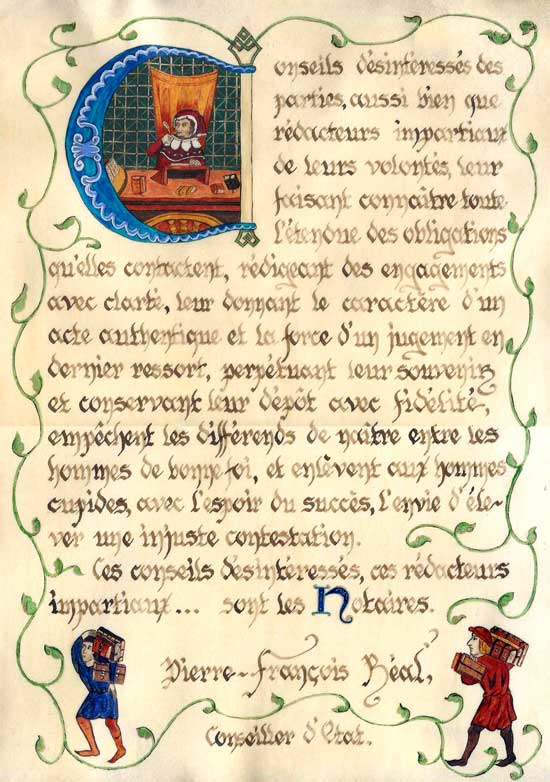 Conseils désintéressés des
parties, aussi bien que
rédacteurs impartiaux
de leurs volontés, leur
faisant connaître toute
l'étendue des obligations
qu'elles contactent, rédigeant des engagements
avec clarté, leur donnant le caractère d'un
acte authentique et la force d'un jugement en
dernier ressort, perpétuant leur souvenir
et conservant leur dépôt avec fidélité,
empêchent les différends de naître entre les
hommes de bonne foi, et enlèvent aux hommes
cupides, avec l'espoir du succès, l'envie d'éle-
ver une injuste contestation.
Ces conseils désintéressés, ces rédacteurs
impartiaux... sont les Notaires.
Pierre-François Réal,
Conseiller d'Etat.